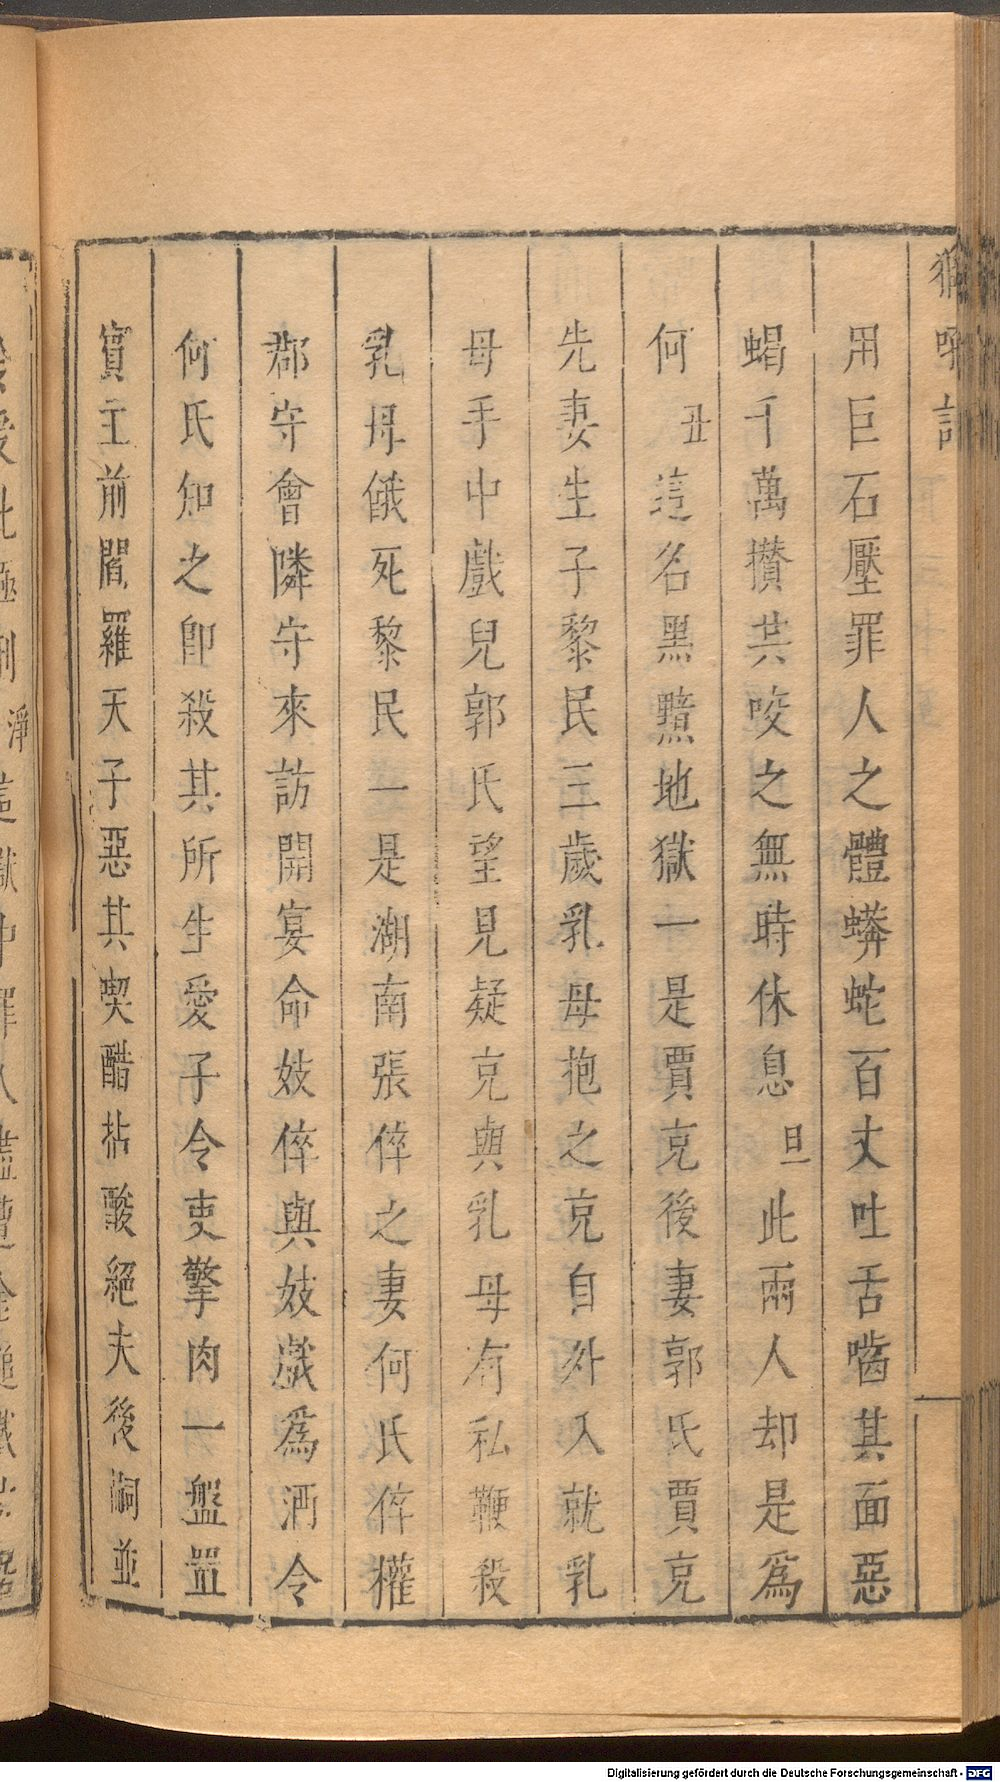 用巨石壓罪人之體蟒蛇百丈吐舌嚙其面惡
蝎千萬攢共咬之無時休息旦此兩人却是爲
何丑這名黑黯地獄一是賈充後妻郭氏賈充
先妻生子黎民三歲乳母抱之充自外入就乳
母手中戲兒郭氏望見疑充與乳母有私鞭殺
乳母餓死黎民一是湖南張倅之妻何氏倅權
郡守會隣守來訪開宴命妓倅與妓戲爲酒令
何氏知之卽殺其所生愛子令吏擎肉一盤置
賓主前閻羅天子惡其喫酷拈酸絕夫後嗣並
Digitalisierung gefördert durch die Deutsche Forschungsgemeinschaft - DFG